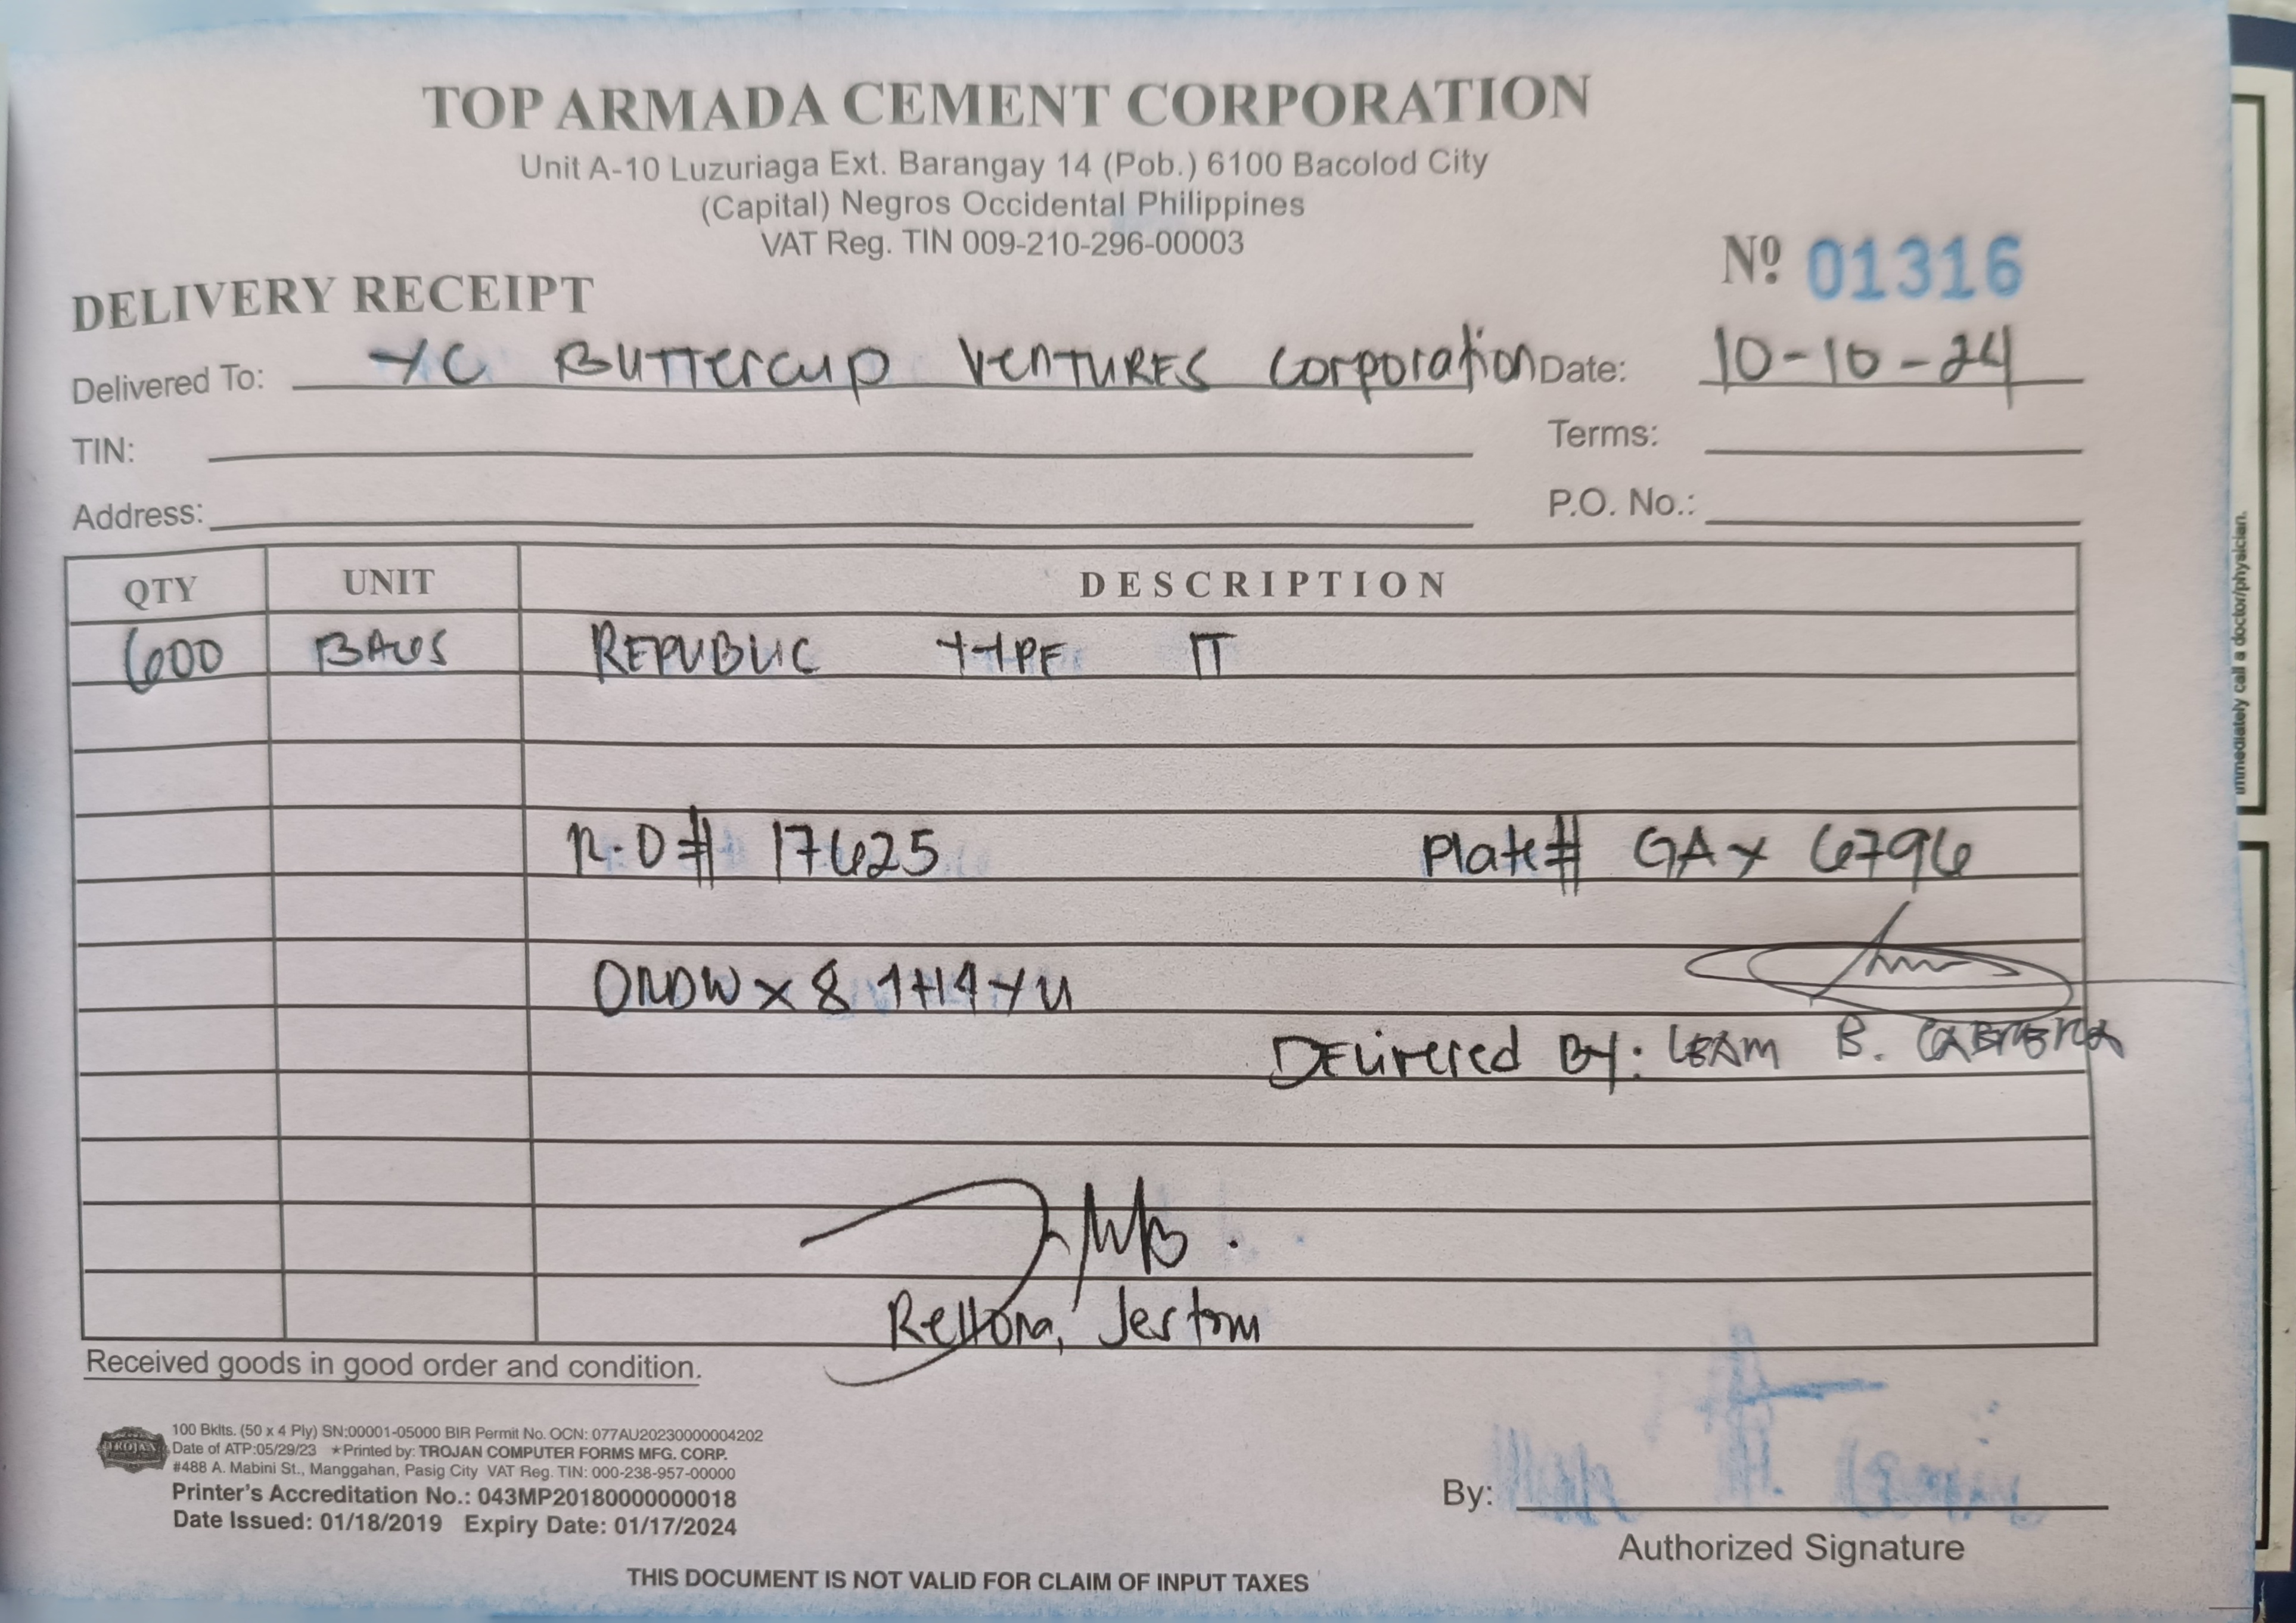 TOP ARMADA CEMENT CORPORATION
Unit A-10 Luzuriaga Ext. Barangay 14 (Pob.) 6100 Bacolod City
(Capital) Negros Occidental Philippines
VAT Reg. TIN 009-210-296-00003
Nº 01316
DELIVERY RECEIPT
Delivered To: YC Buttercup Ventures Corporation Date: 10-10-24
TIN: Terms:
Address: P.O. No.:
QTY UNIT DESCRIPTION
600 BAGS REPUBLIC TYPE IT
R.O# 17625 Plate# GAY 6796
Delivered By: B. CABRERA
Rellora, Jestom
Received goods in good order and condition.
TROJAN
100 Bklts. (50 x 4 Ply) SN:00001-05000 BIR Permit No. OCN: 077AU20230000004202
Date of ATP:05/29/23 ★Printed by: TROJAN COMPUTER FORMS MFG. CORP.
#488 A. Mabini St., Manggahan, Pasig City VAT Reg. TIN: 000-238-957-00000
Printer's Accreditation No.: 043MP20180000000018
Date Issued: 01/18/2019 Expiry Date: 01/17/2024
By:
Authorized Signature
THIS DOCUMENT IS NOT VALID FOR CLAIM OF INPUT TAXES
immediately call a doctor/physician.